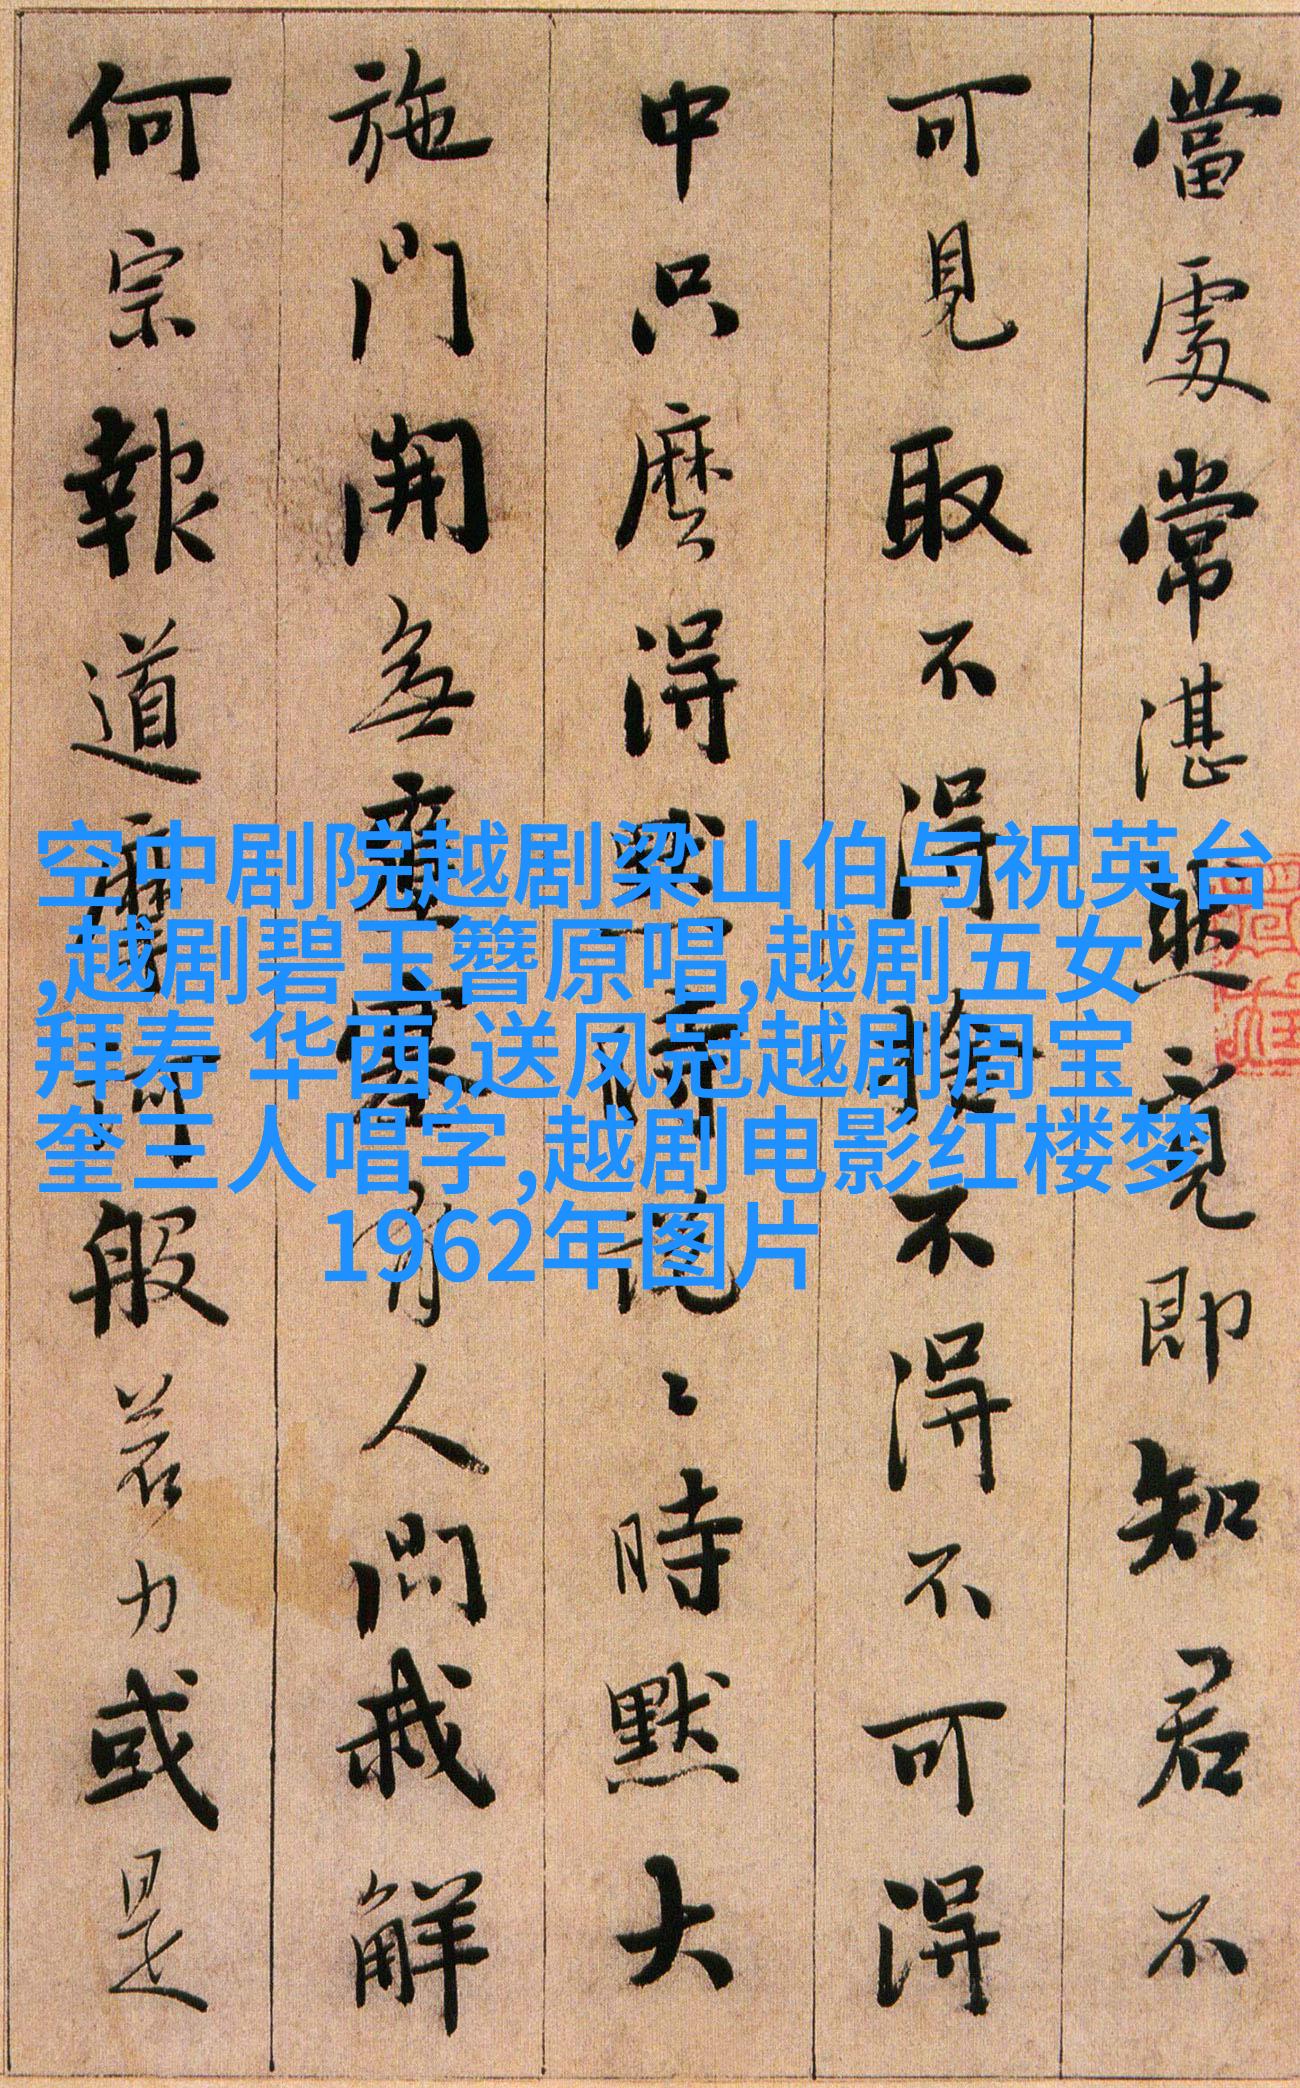 當處常湛然覓即知君不
可見取不得捨不得不可得
中只麼得默時說〻時默大
施門開無壅塞有人問我解
何宗報道摩訶般若力或是
空中剧院越剧梁山伯与祝英台
,越剧碧玉簪原唱,越剧五女
拜寿 华西,送凤冠越剧周宝
奎三人唱字,越剧电影红楼梦
1962年图片